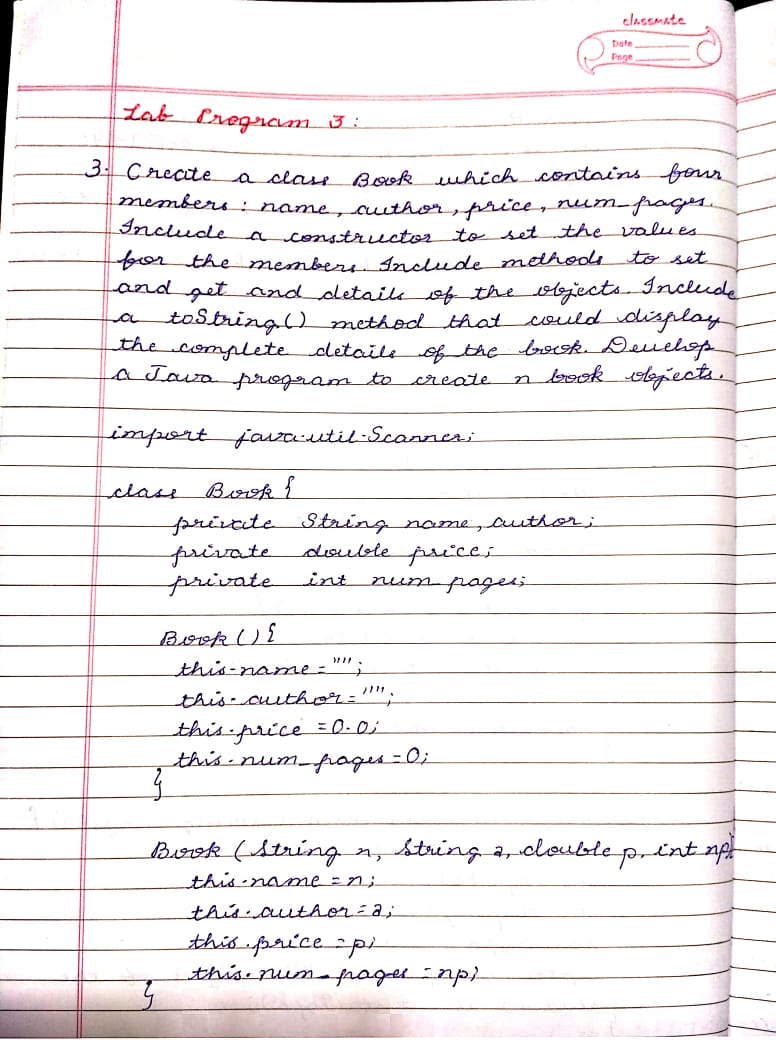 classmate
Date
Page
Lab Program 3:
3. Create a class Book which contains four
members: name, author, price, num_pages.
Include a constructor to set the values
for the members. Include methods to set
and get and details of the objects. Include
a toString() method that could display
the complete details of the book. Develop
a Java program to create n book objects.
import java.util.Scanner;
class Book {
private String name, author;
private double price;
private int num_pages;
Book () {
this.name = "";
this.author = "";
this.price = 0.0;
this.num_pages = 0;
}
Book (String n, String a, double p, int np){
this.name = n;
this.author = a;
this.price = p;
this.num_pages = np;
}